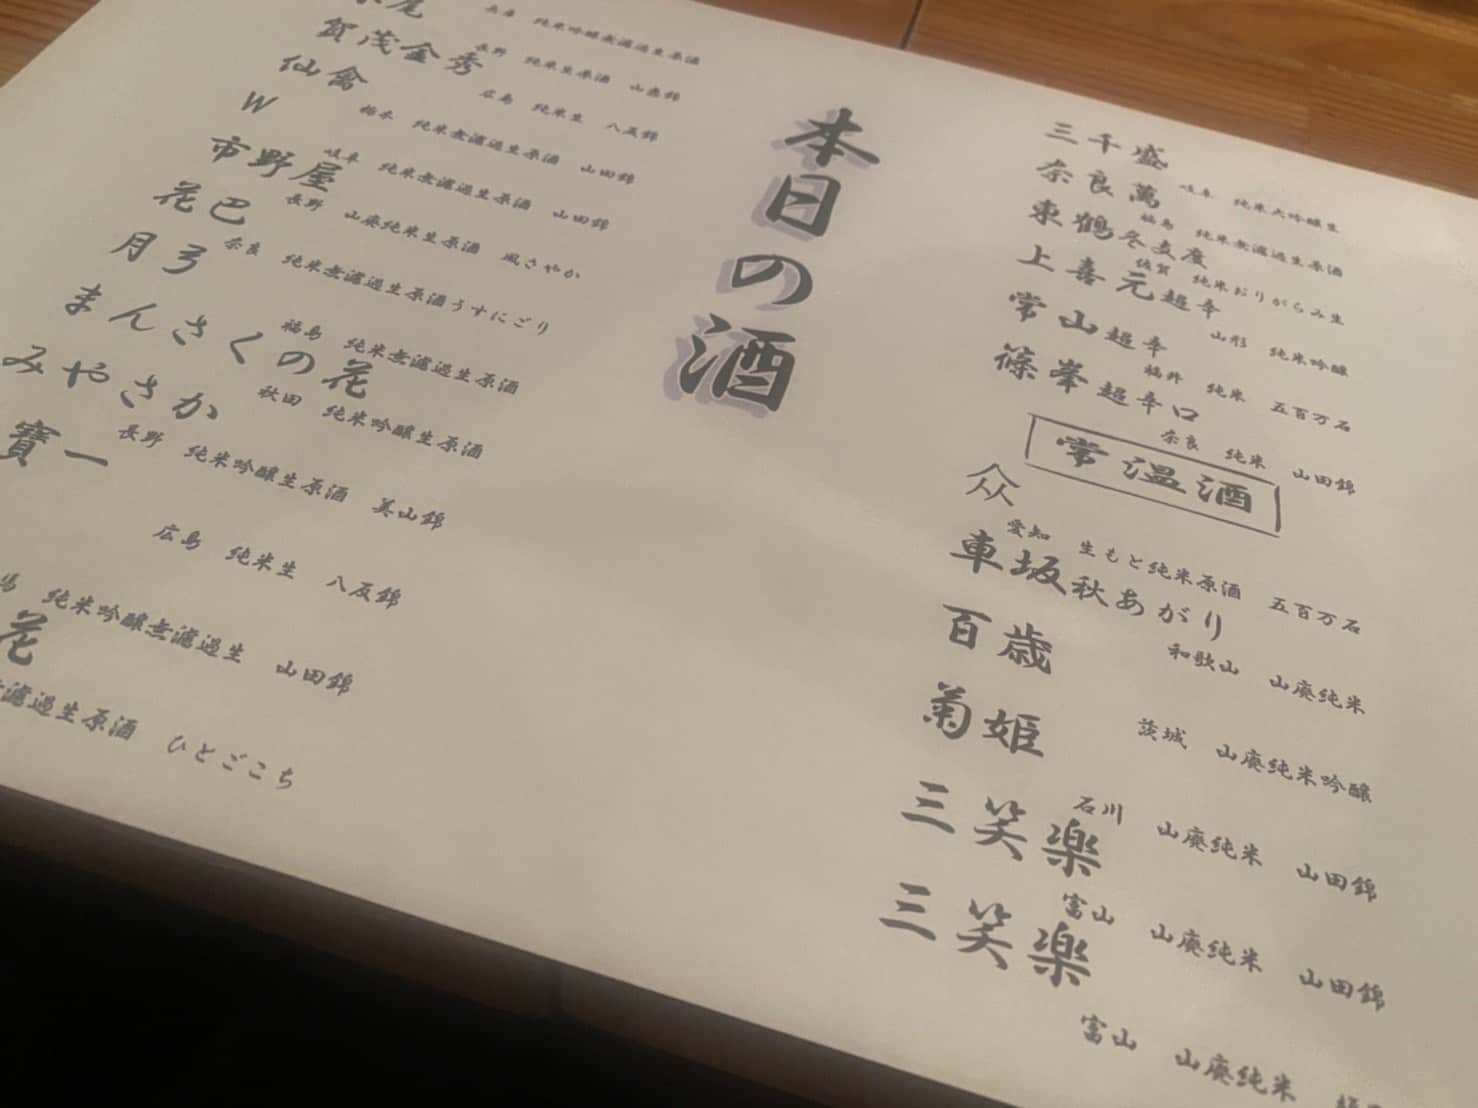 尾
兵庫 純米吟醸無濾過生原酒
賀茂金秀
長野 純米生原酒 山恵錦
仙禽
広島 純米生 八反錦
W
栃木 純米無濾過生原酒 山田錦
市野屋
岐阜 純米無濾過生原酒 山田錦
花巴
長野 山廃純米生原酒 風さやか
月弓
奈良 純米無濾過生原酒うすにごり
まんさくの花
福島 純米無濾過生原酒
みやさか
秋田 純米吟醸生原酒
寶一
長野 純米吟醸生原酒 美山錦
広島 純米生 八反錦
純米吟醸無濾過生 山田錦
花
濾過生原酒 ひとごこち
本日の酒
三千盛
岐阜 純米大吟醸生
奈良萬
福島 純米無濾過生原酒
東鶴冬支度
佐賀 純米おりがらみ生
上喜元超辛
山形 純米吟醸
常山超辛
福井 純米 五百万石
篠峯超辛口
奈良 純米 山田錦
常温酒
众
愛知 生もと純米原酒 五百万石
車坂秋あがり
和歌山 山廃純米
百歳
茨城 山廃純米吟醸
菊姫
石川 山廃純米 山田錦
三笑楽
富山 山廃純米 山田錦
三笑楽
富山 山廃純米